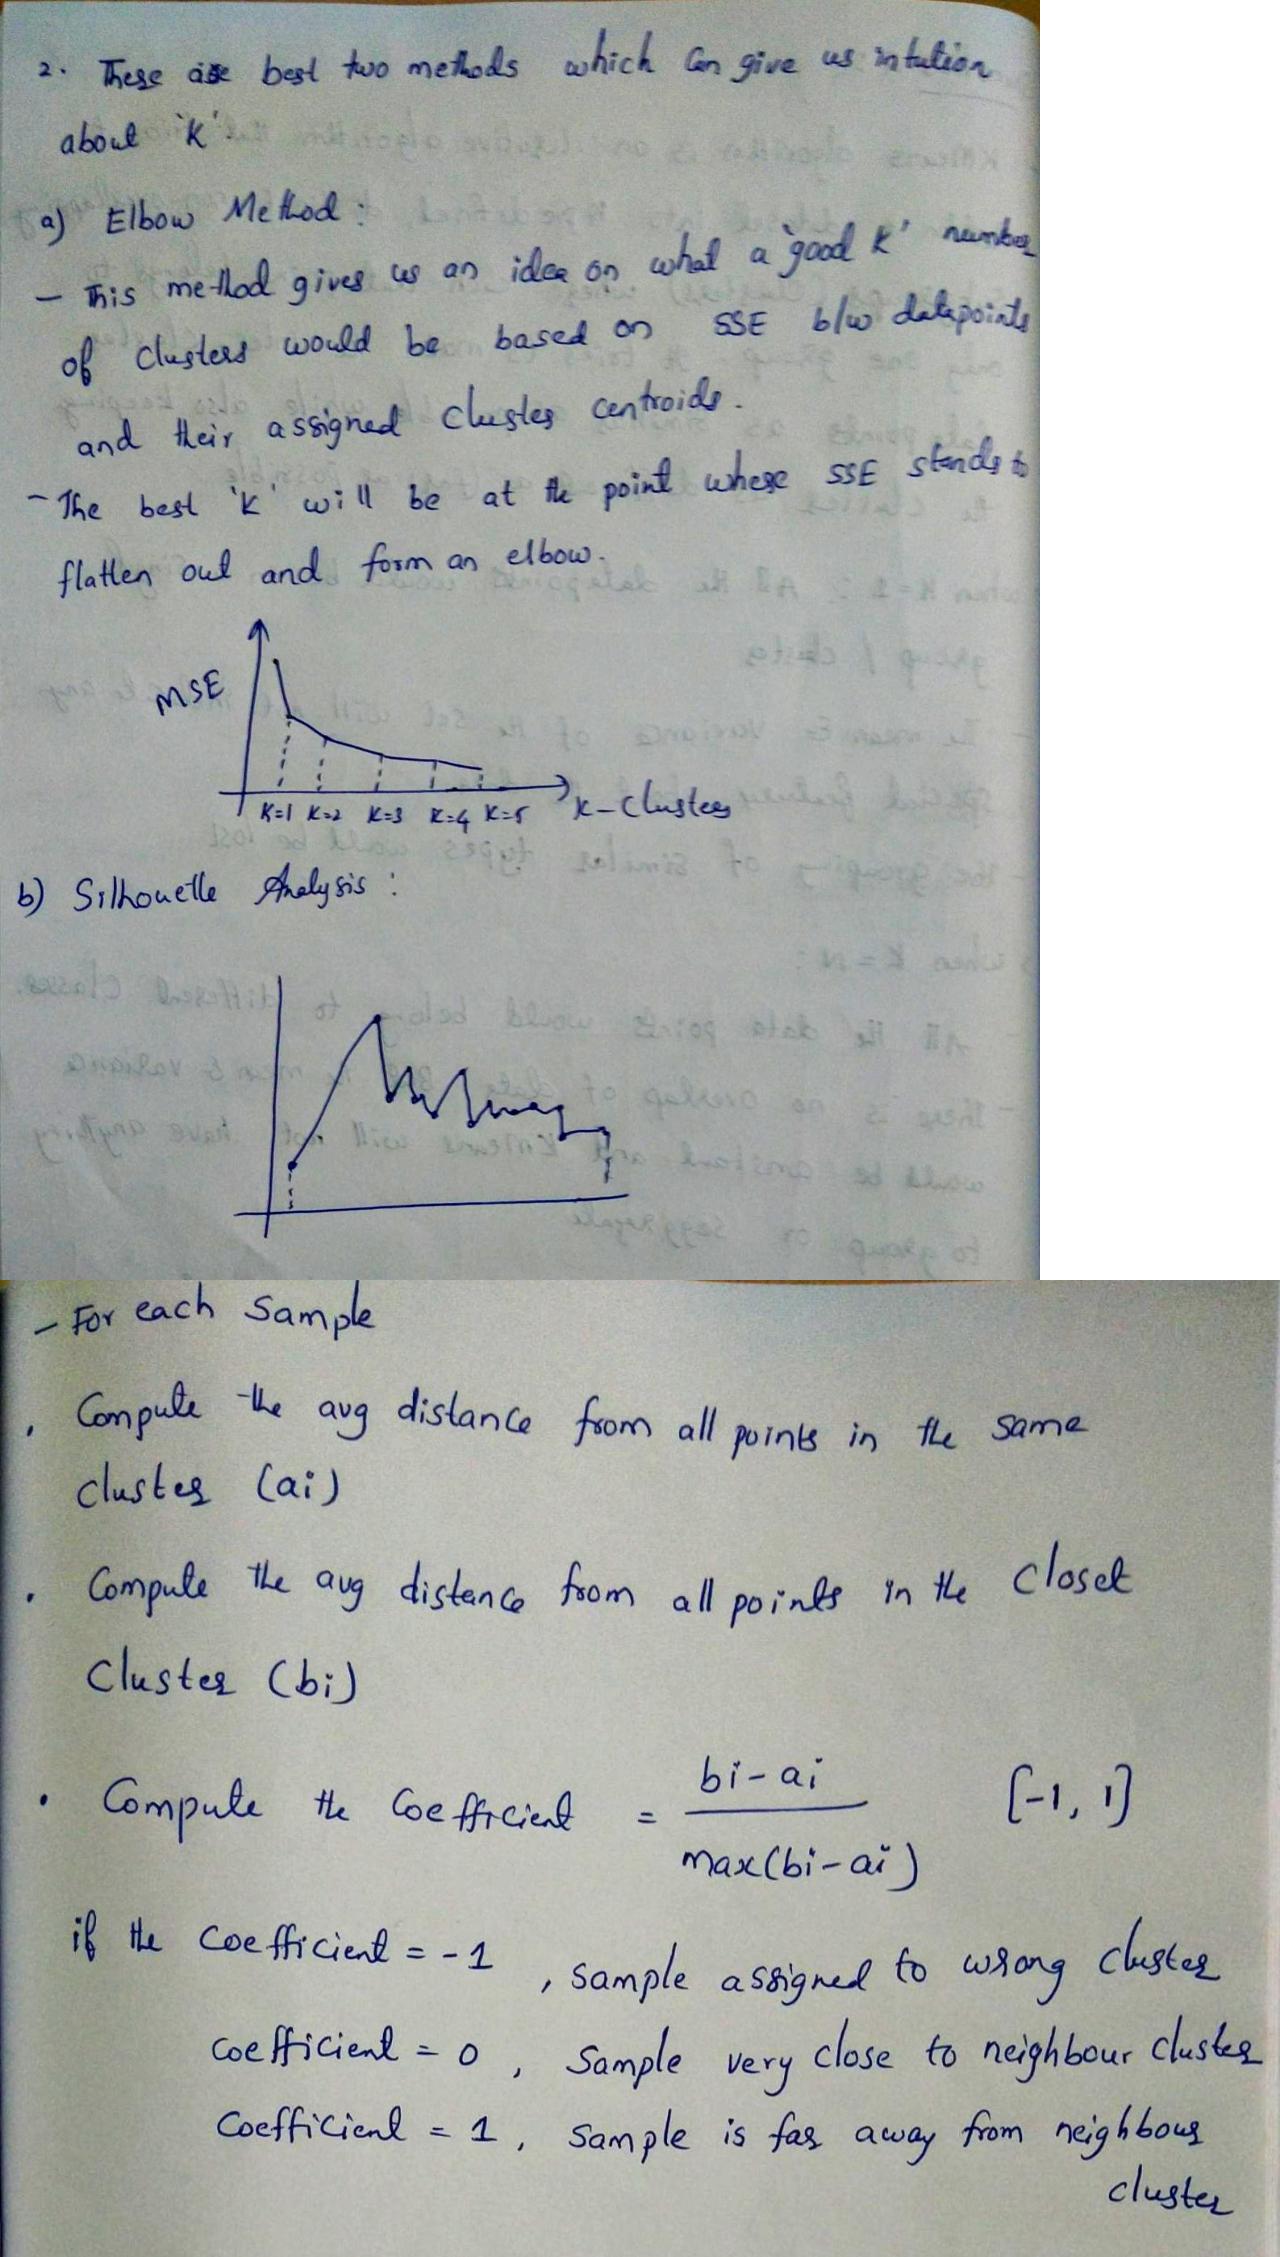 2. These are best two methods which Can give us intution
about 'K'.
a) Elbow Method :
- This method gives us an idea on what a 'good K' number
of clusters would be based on SSE b/w datapoints
and their assigned Cluster centroids.
- The best 'K' will be at the point where SSE stends to
flatten out and form an elbow.
MSE
K=1 K=2 K=3 K=4 K=5 K-Clusters
b) Silhouette Analysis :
- For each Sample
. Compute the avg distance from all points in the same
cluster (ai)
. Compute the avg distance from all points in the Closet
Cluster (bi)
. Compute the Coefficient = bi-ai / max(bi-ai) [-1, 1]
if the Coefficient = -1 , sample assigned to wrong cluster
coefficient = 0 , Sample very close to neighbour cluster
Coefficient = 1 , Sample is far away from neighbour
cluster